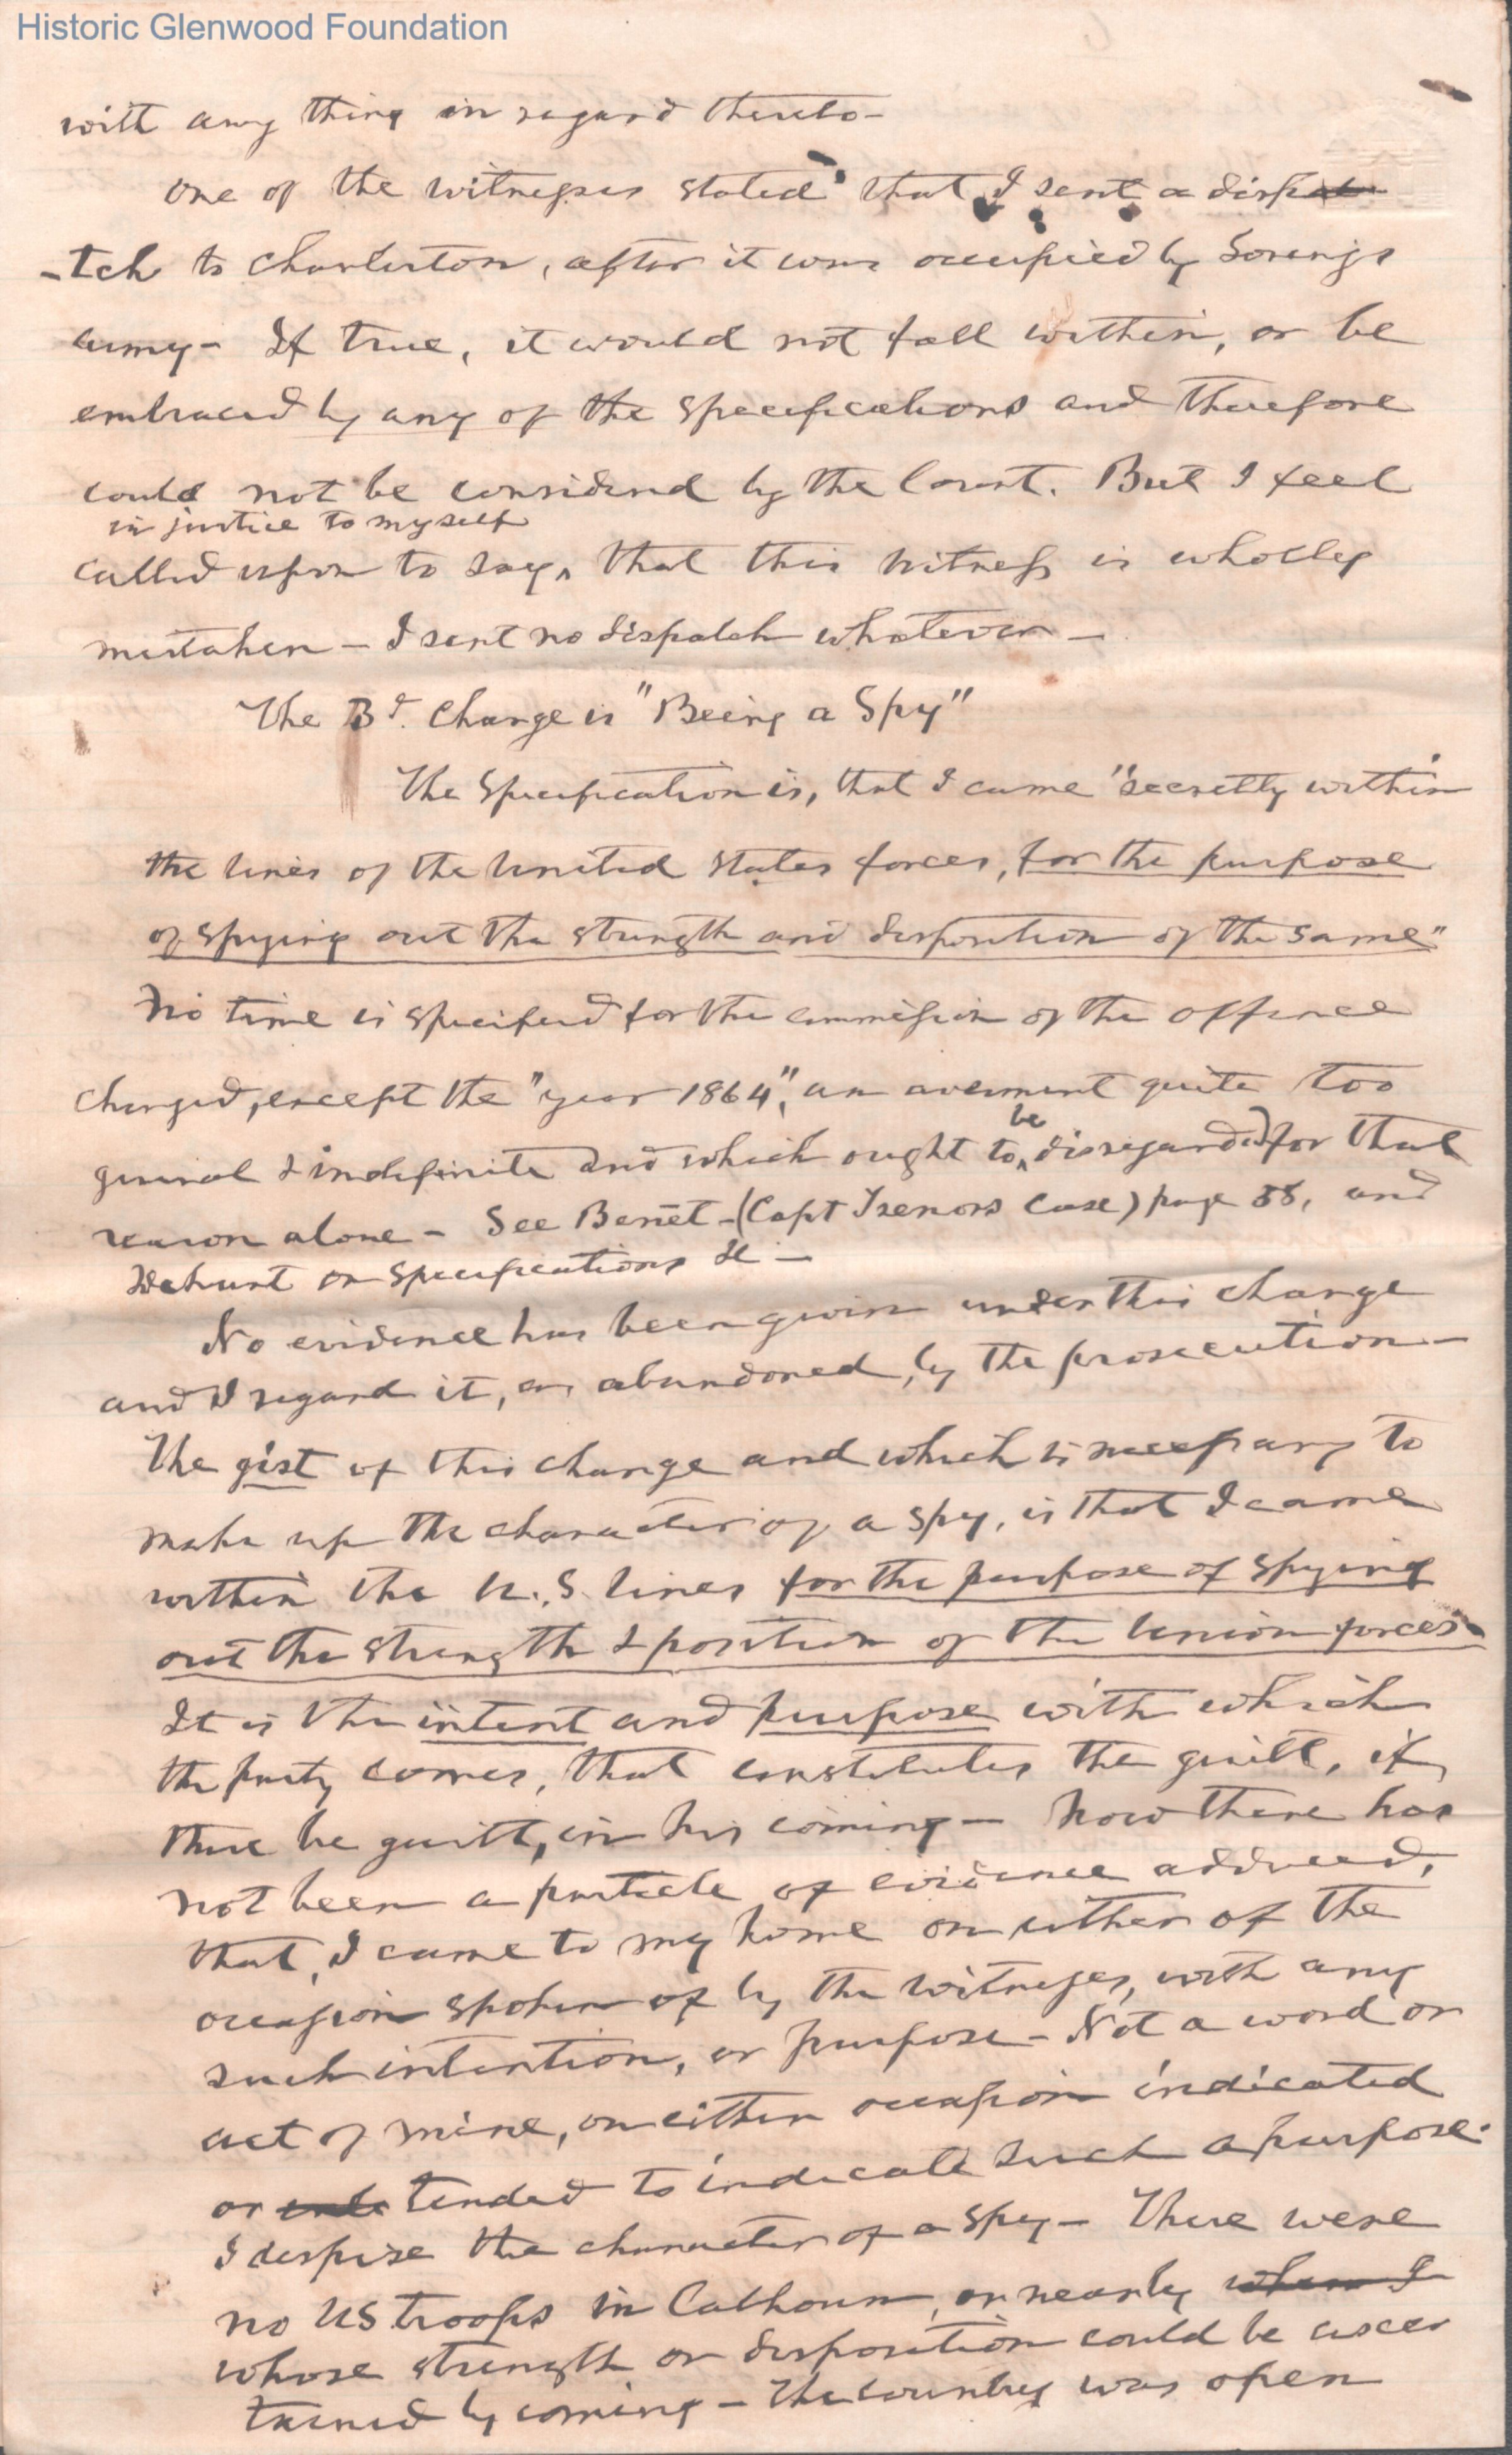 Historic Glenwood Foundation
with any thing in regard thereto-
One of the witnesses stated that I sent a dispat
-tch to Charleston, after it was occupied by Lorings
army- If true, it would not fall within, or be
embraced by any of the specifications and therefore
could not be considered by the Court. But I feel
in justice to myself
called upon to say, that this witness is wholly
mistaken - I sent no dispatch whatever -
The 3d. Charge is "Being a Spy"
The Specification is, that I came "secretly within
the lines of the United States forces, for the purpose
of spying out the strength and disposition of the same"
No time is specified for the commission of the offence
charged, except the "year 1864", an averment quite too
be
general & indefinite and which ought to disregarded for that
reason alone - See Benet - (Capt Trenors Case) page 55, and
Dehart on Specifications &c -
No evidence has been given under this charge
and I regard it, as abandoned, by the prosecution -
The gist of this charge and which is necessary to
make up the character of a spy, is that I came
within the U.S. lines for the purpose of spying
out the strength & position of the Union forces.
It is the intent and purpose with which
the party comes, that constitutes the guilt, if
there be guilt, in his coming - Now there has
not been a particle of evidence adduced,
that, I came to my home on either of the
occasion spoken of by the witnesses, with any
such intention, or purpose - Not a word or
act of mine, on either occasion indicated
or tended to indicate such a purpose.
I despise the character of a spy - There were
no US troops in Calhoun, or nearby when I
whose strength or disposition could be ascer
tained by coming - The country was open